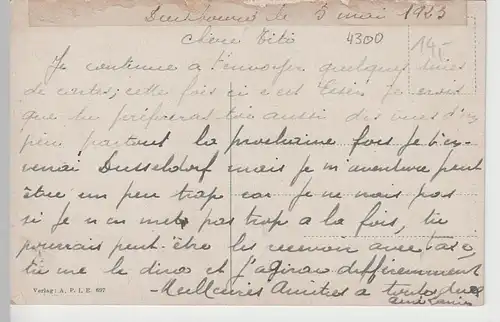 le 5 mai 1923
Chère Tité 4300 14,-
Je continue à t'envoyer quelques vues
de cartes; cette fois ci c'est Essen. Je crois
que tu préfereras toi aussi des vues d'un
peu partout la prochaine fois je t'en-
verrai Dusseldorf mais je m'aventure peut
être un peu trop car je ne sais pas
si je n'en mets pas trop a la fois, tu
pourrais peut-être les recevoir avec taxe,
tu me le diras et j'agirai différemment
Verlag: A. P. I. E. 697 - Meilleures Amitiés a toutes deux